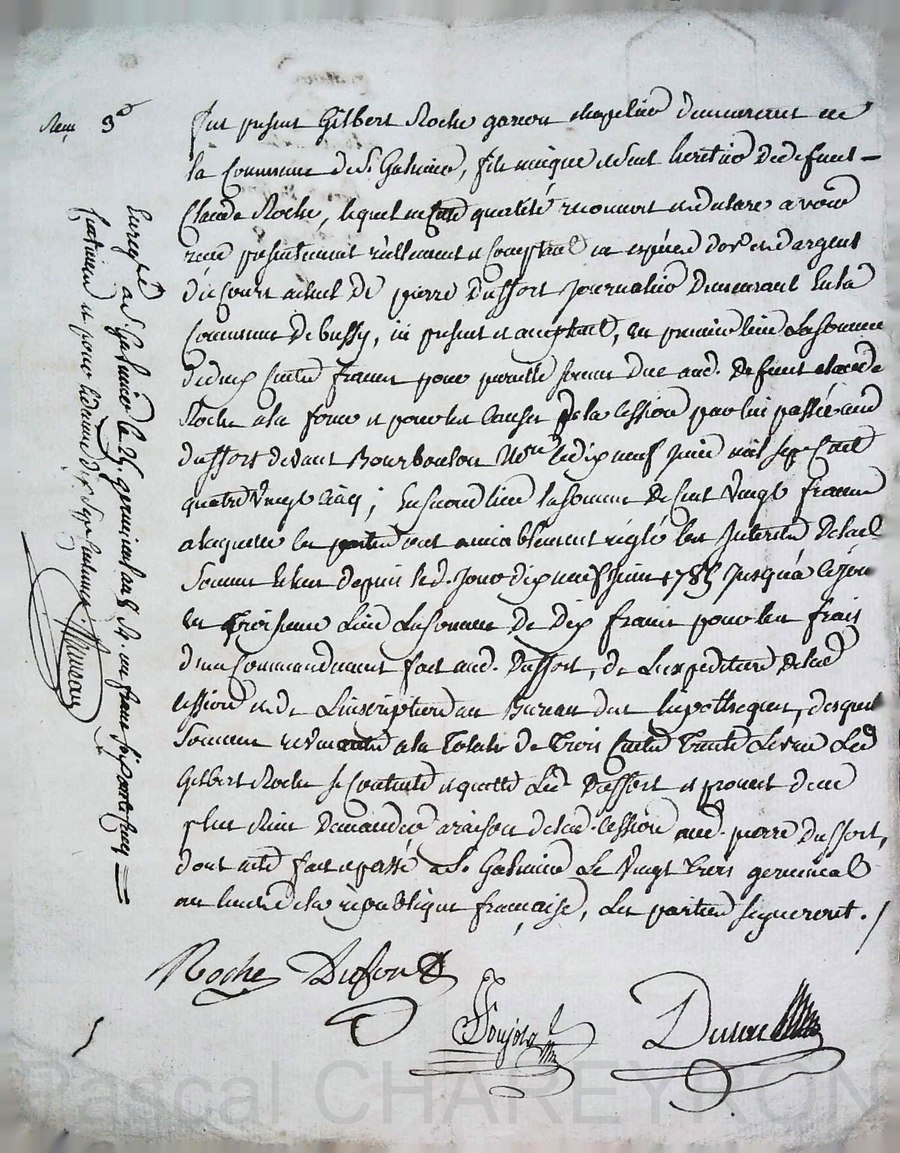 Fut présent Gilbert Roche garçon chapelier demeurant en
la Commune de St Galmier, fils unique et seul heritier de defunt
Claude Roche, lequel en cette qualité reconnoit et declare avoir
reçu presentement réellement et comptant en espèces d'or et d'argent
du cours actuel de pierre Dussort Journalier demeurant en la
Commune de bussy, ici présent et acceptant, en premier lieu la somme
de deux Cents francs pour pareille somme due aud. defunt claude
Roche a la forme et pour les causes de la cession par lui passée aud
dussort devant Bourboulon Nore le dix neuf Juin mil sept Cent
quatre Vingt Cinq ; En second lieu la somme de Cent Vingt francs
a laquelle les parties ont amiablement réglé les Interets de lad
somme depuis led. Jour dix neuf Juin 1785 Jusqu'a ce jour
en troisieme Lieu La somme de Dix francs pour les frais
d'un Commandement fait aud. Dussort, de L'expedition de lad
cession et de L'inscription au Bureau des hypotheques, desquelles
sommes revenantes a la totale de trois Cents trente Led
Gilbert Roche se Contente et quitte Led Dussort et promet de ne
plus Rien demander a raison de lad. cession aud. pierre Dussort,
dont acte fait et passé a St Galmier Le Vingt trois germinal
an huit de la république française, Les parties signeront. /
Roche Dusort
Dujola
Reçu 3d
Enregtré a St Galmier le 25 germinal an 8